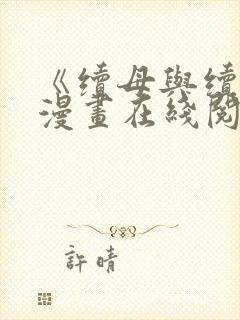 《續母與續
漫畫在綫閱
許晴